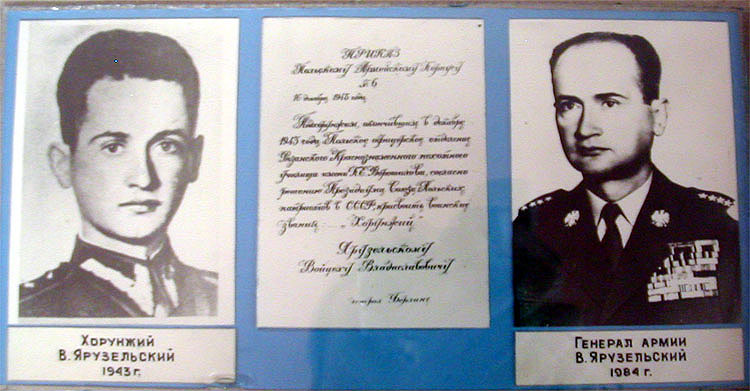 Хорунжий
В. Ярузельский
1943 г.
ПРИКАЗ
Польскому Армейскому Корпусу
№ 6
16 декабря 1943 года
Подхорунжим, окончившим в декабре
1943 года Польское офицерское отделение
Рязанского Краснознаменного пехотного
училища имени К.Е. Ворошилова, согласно
решению Президиума Союза Польских
патриотов в СССР, присвоить воинское
звание „Хорунжий“
Ярузельскому
Войцеху Владиславовичу
генерал Берлинг
Генерал армии
В. Ярузельский
1984 г.